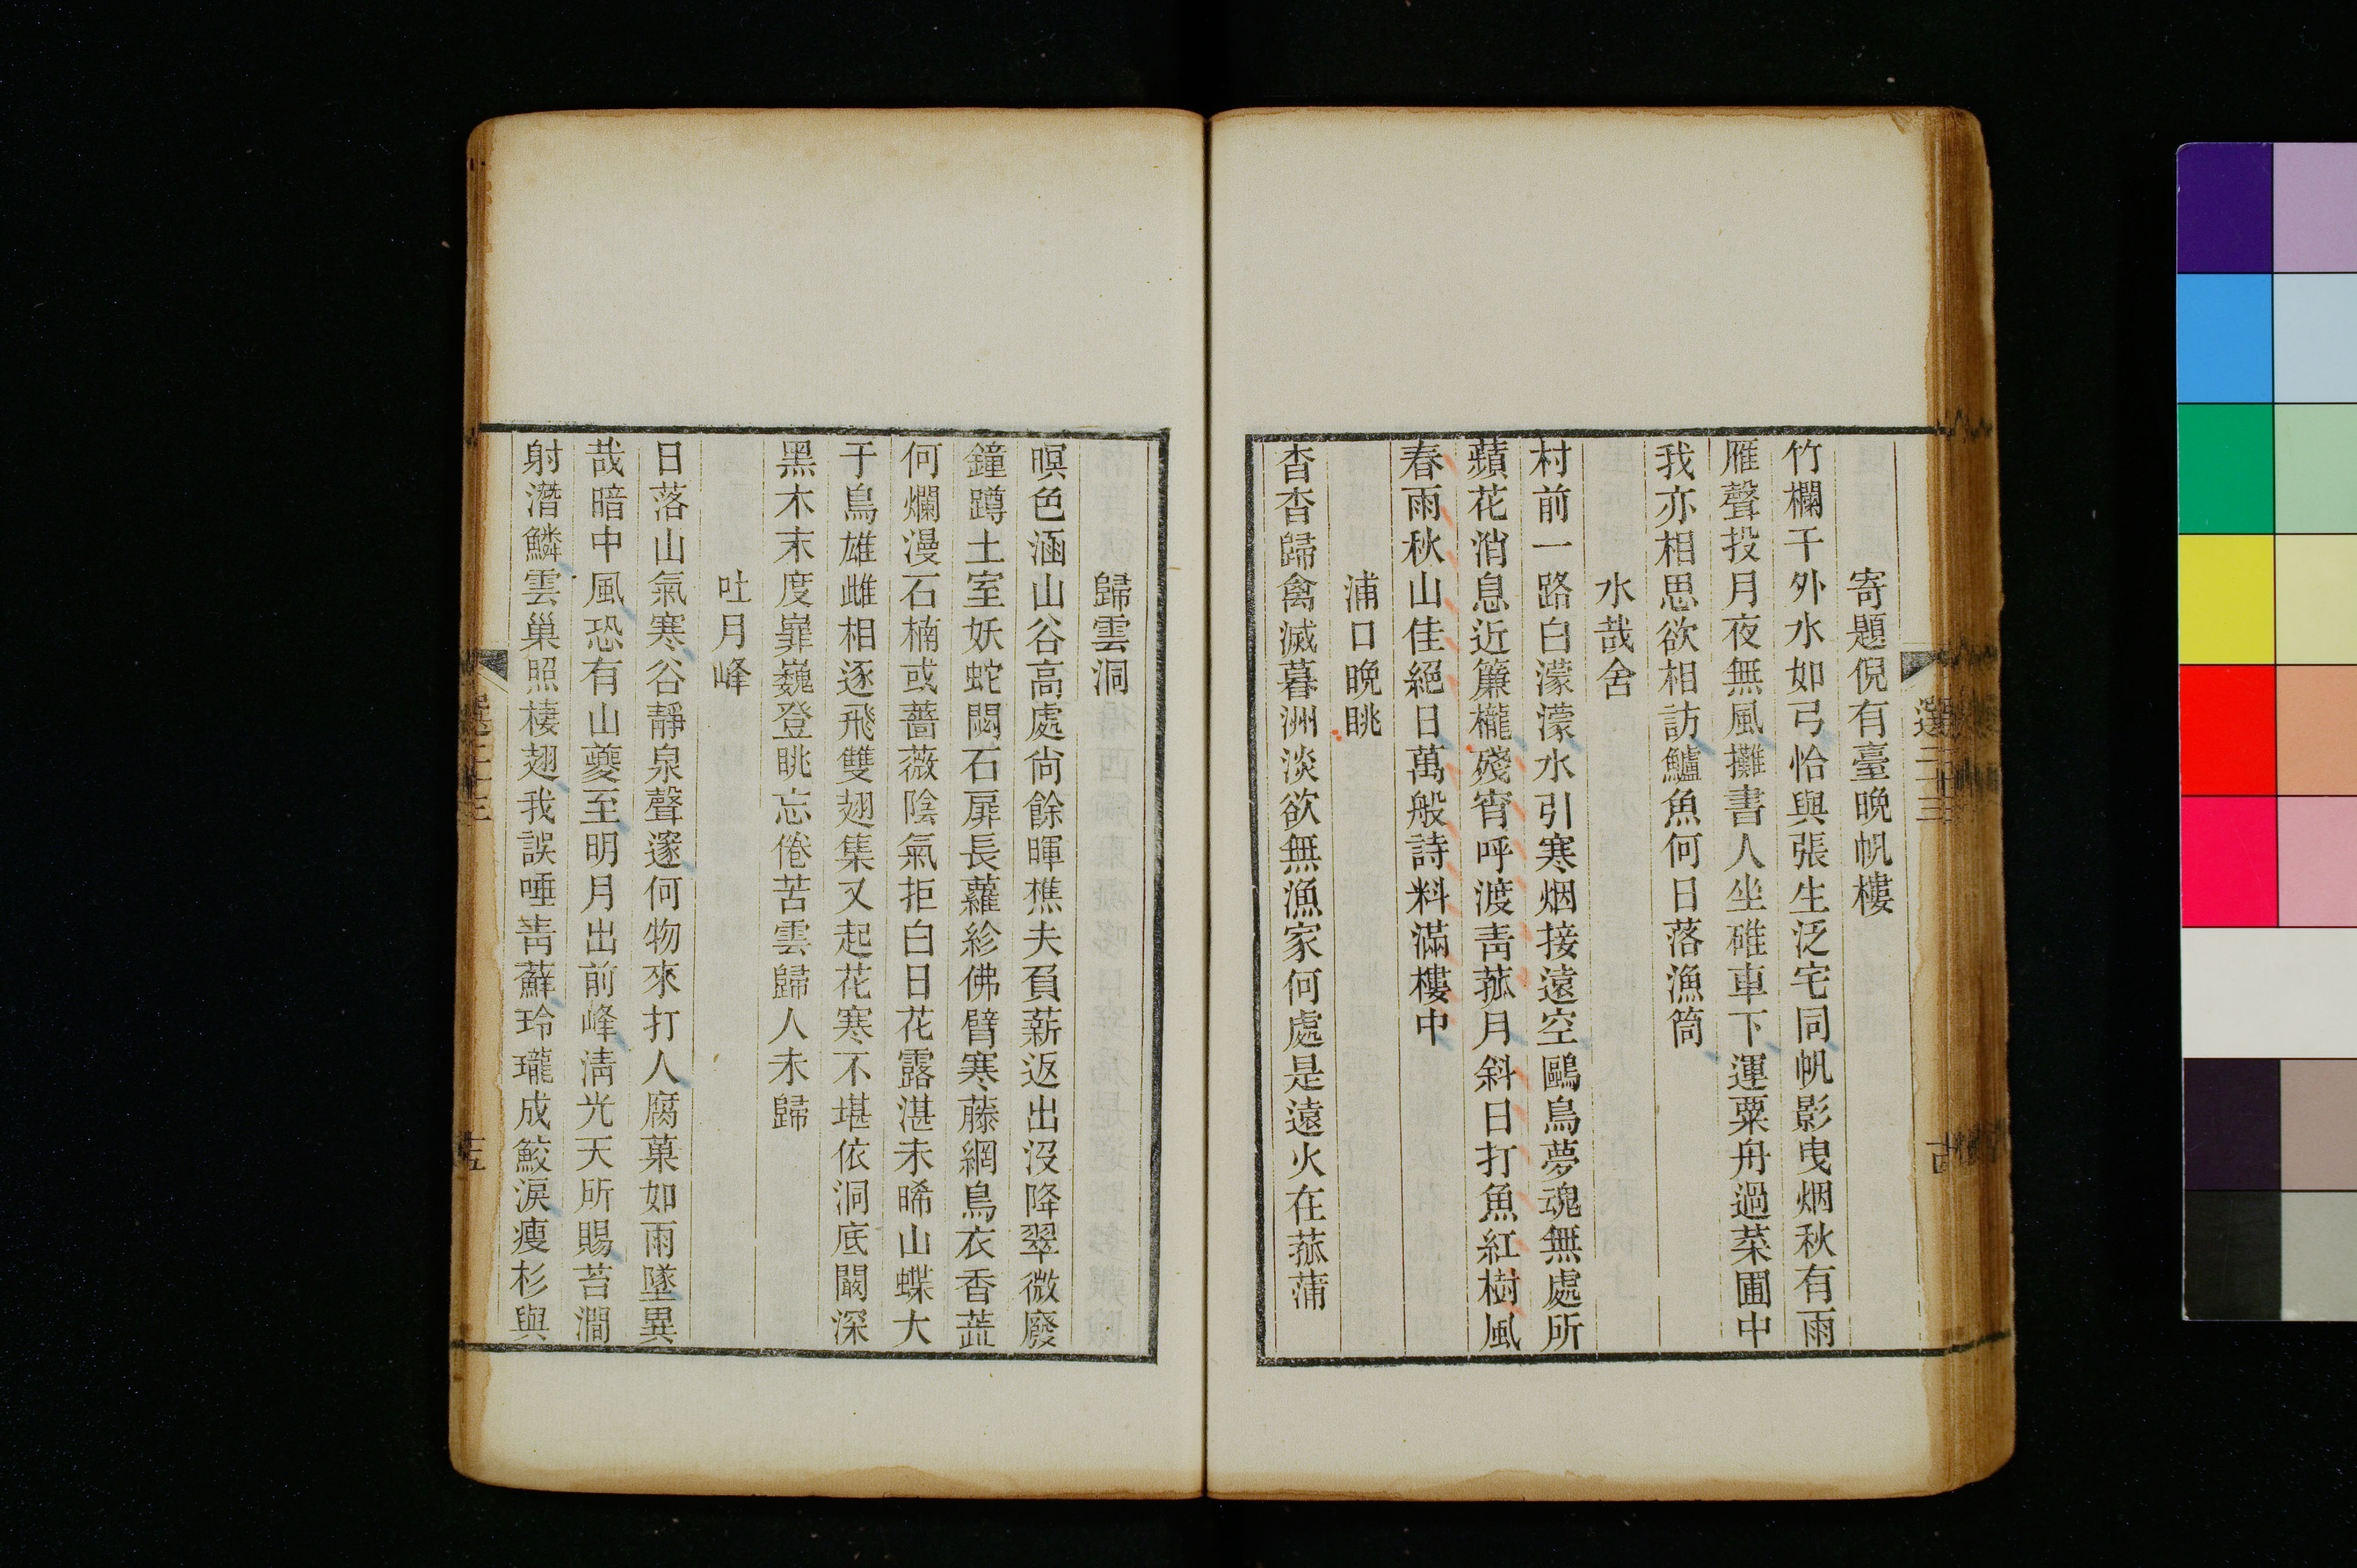 寄題倪有臺晩帆樓
竹欄干外水如弓恰與張生泛宅同帆影曳烟秋有雨
雁聲投月夜無風攤書人坐碓車下運粟舟過菜圃中
我亦相思欲相訪鱸魚何日落漁筒
水哉舍
村前一路白濛濛水引寒烟接遠空鷗鳥夢魂無處所
蘋花消息近簾櫳殘宵呼渡靑菰月斜日打魚紅樹風
春雨秋山佳絕日萬般詩料滿樓中
浦口晩眺
杳杳歸禽滅暮洲淡欲無漁家何處是遠火在菰蒲
選二十三
十四
歸雲洞
暝色涵山谷高處尙餘暉樵夫負薪返出沒降翠微廢
鐘蹲土室妖蛇閟石扉長蘿紾佛臂寒藤網鳥衣香蔬
何爛漫石楠或薔薇陰氣拒白日花露湛未晞山蝶大
于鳥雄雌相逐飛雙翅集又起花寒不堪依洞底闞深
黑木末度嶭巍登眺忘倦苦雲歸人未歸
吐月峰
日落山氣寒谷靜泉聲邃何物來打人腐菓如雨墜異
哉暗中風恐有山夔至明月出前峰淸光天所賜苔澗
射潛鱗雲巢照棲翅我誤唾靑蘚玲瓏成鮫淚瘦杉與
選二十三
十五